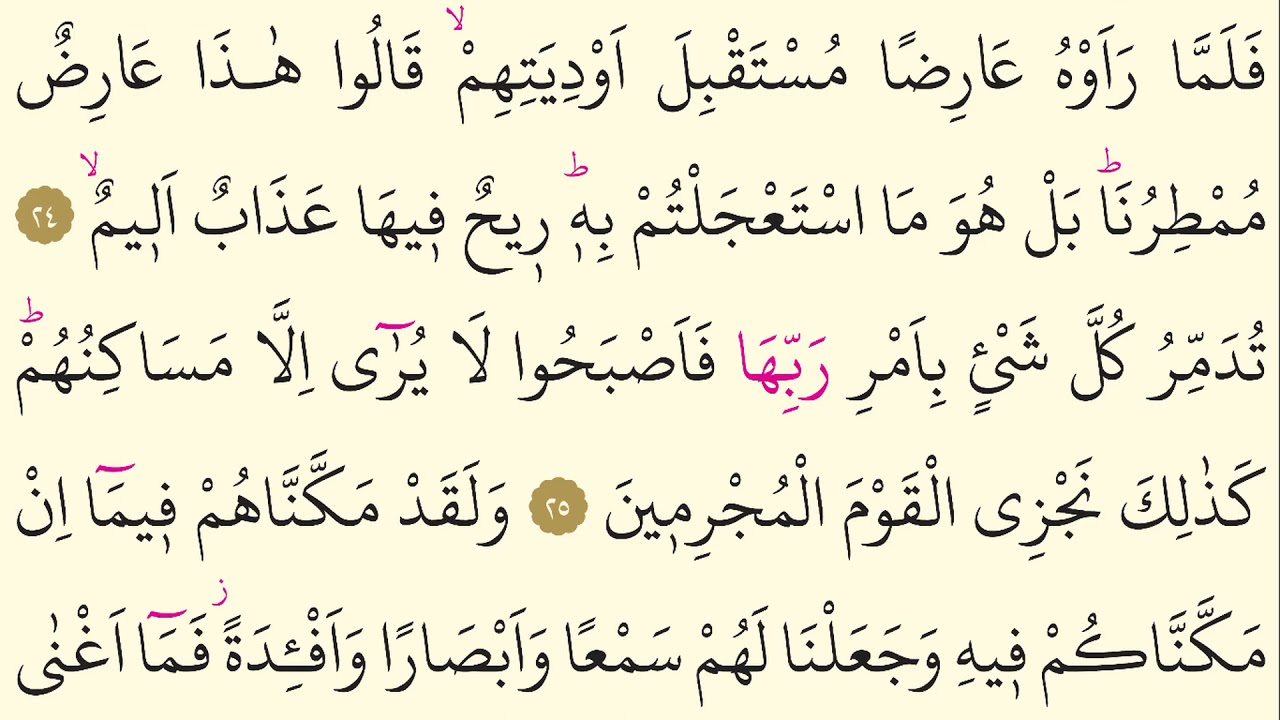 فَلَمَّا رَاَوْهُ عَارِضًا مُسْتَقْبِلَ اَوْدِيَتِهِمْۙ قَالُوا هٰـذَا عَارِضٌ
مُمْطِرُنَاۜ بَلْ هُوَ مَا اسْتَعْجَلْتُمْ بِهٖۜ رٖيحٌ فٖيهَا عَذَابٌ اَلٖيمٌۙ ٢٤
تُدَمِّرُ كُلَّ شَيْئٍ بِاَمْرِ رَبِّهَا فَاَصْبَحُوا لَا يُرٰٓى اِلَّا مَسَاكِنُهُمْۜ
كَذٰلِكَ نَجْزِى الْقَوْمَ الْمُجْرِمٖينَ ٢٥ وَلَقَدْ مَكَّنَّاهُمْ فٖيمَٓا اِنْ
مَكَّنَّاكُمْ فٖيهِ وَجَعَلْنَا لَهُمْ سَمْعًا وَاَبْصَارًا وَاَفْـِٔدَةًؗ فَمَٓا اَغْنٰى